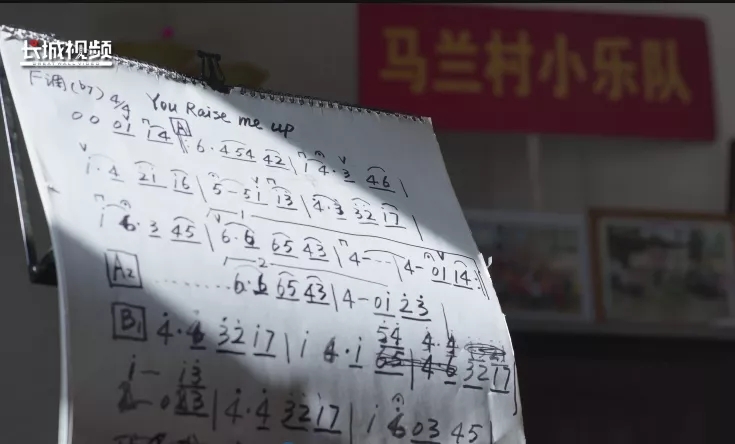 长城视频
马兰村小乐队
F调(b7) 4/4 You Raise me up
0 0 01 14 A 6·454 42 | i 4·3 46 |
i·4 21 i6 | 5-5i i3 | 4·3 32 i7 |
i 6·3 45 | 6·6 65 43 | 4--- | 4-01 14
A2 ........ 6·6 65 43 | 4-0i 23
B1 4·4 32 i7 | i 4·i
54 4·4
46 32 i7
i- i3
| 4·4 32 i7 | i 6 03 45 |